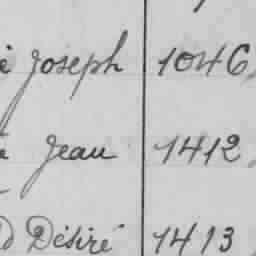 Joseph 1046
Jean 1412
Désiré 1413